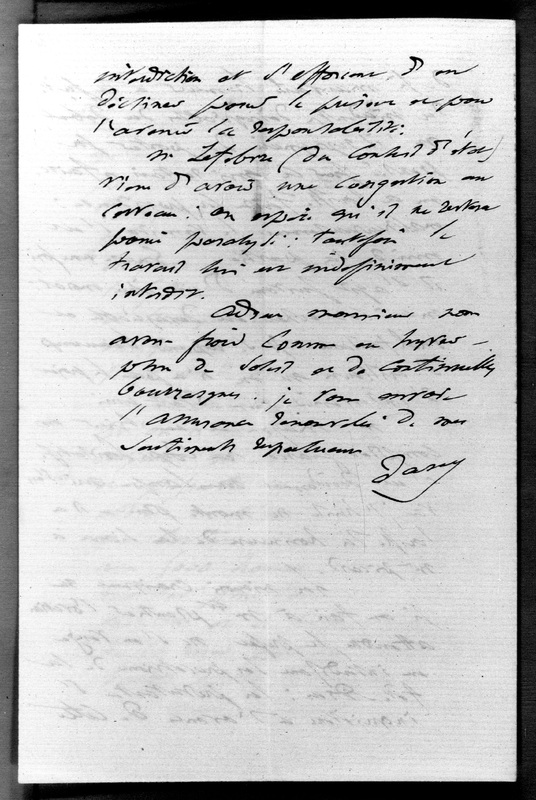 interdiction et s'efforcent d'en
décliner pour le présent et pour
l'avenir la responsabilité.
Mr Lefebvre (du Conseil d'état)
vient d'avoir une congestion au
cerveau : on espère qu'il ne restera
point paralysé : toutefois le
travail lui est indéfiniment
interdit.
Adieu monsieur nous
avons froid comme en hyver -
point de soleil et de continuelles
bourrasques. je vous envoie
l'assurance renouvelée de mes
sentiments respectueux